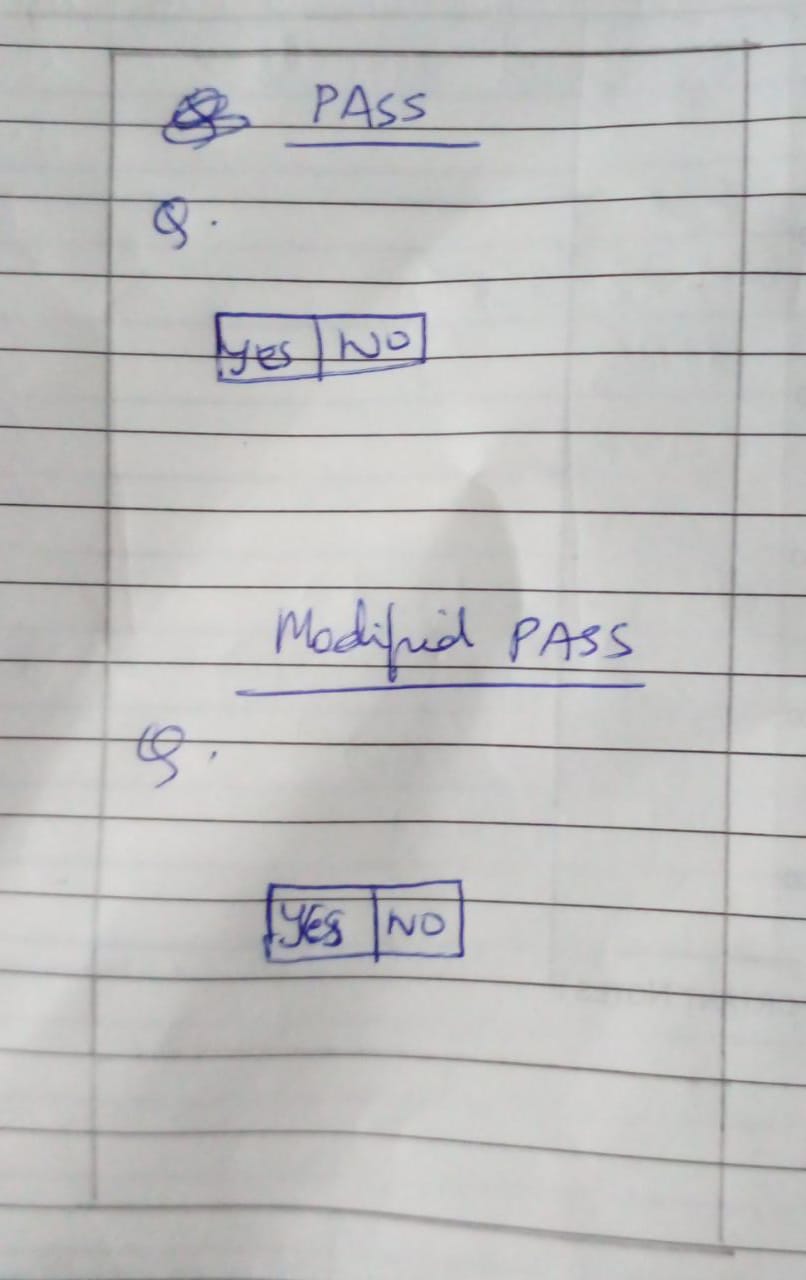 PASS
Q.
Yes NO
Modified PASS
Q.
Yes NO